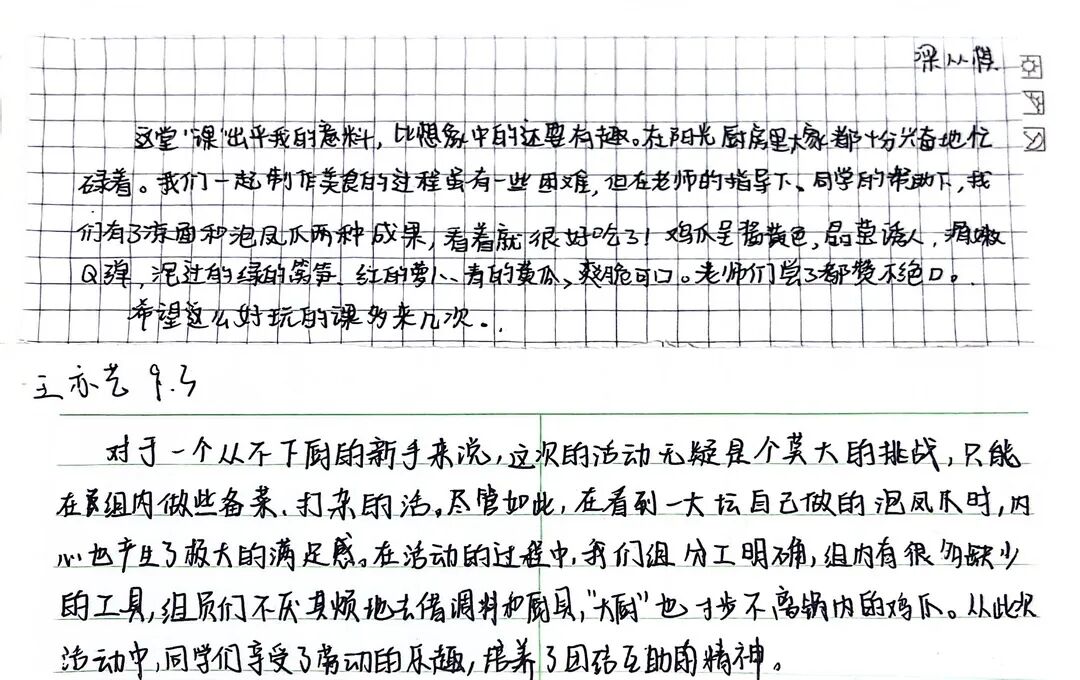 梁从慎
这堂“课”出乎我的意料，比想象中的还要有趣。在阳光厨房里大家都十分兴奋地忙
碌着。我们一起制作美食的过程虽有一些困难，但在老师的指导下、同学的帮助下，我
们有了凉面和泡凤爪两种成果，看着就很好吃了！鸡爪呈橘黄色，晶莹诱人，滑嫩
Q弹，泡过的绿的莴笋、红的萝卜、青的黄瓜、爽脆可口。老师们尝了都赞不绝口。
希望这么好玩的课多来几次。
王亦艺 9.3
对于一个从不下厨的新手来说，这次的活动无疑是个莫大的挑战，只能
在组内做些备菜、打杂的活。尽管如此，在看到一大坛自己做的泡凤爪时，内
心也产生了极大的满足感。在活动的过程中，我们组分工明确，组内有很多缺少
的工具，组员们不厌其烦地去借调料和厨具，“大厨”也寸步不离锅内的鸡爪。从此次
活动中，同学们享受了劳动的乐趣，培养了团结互助的精神。